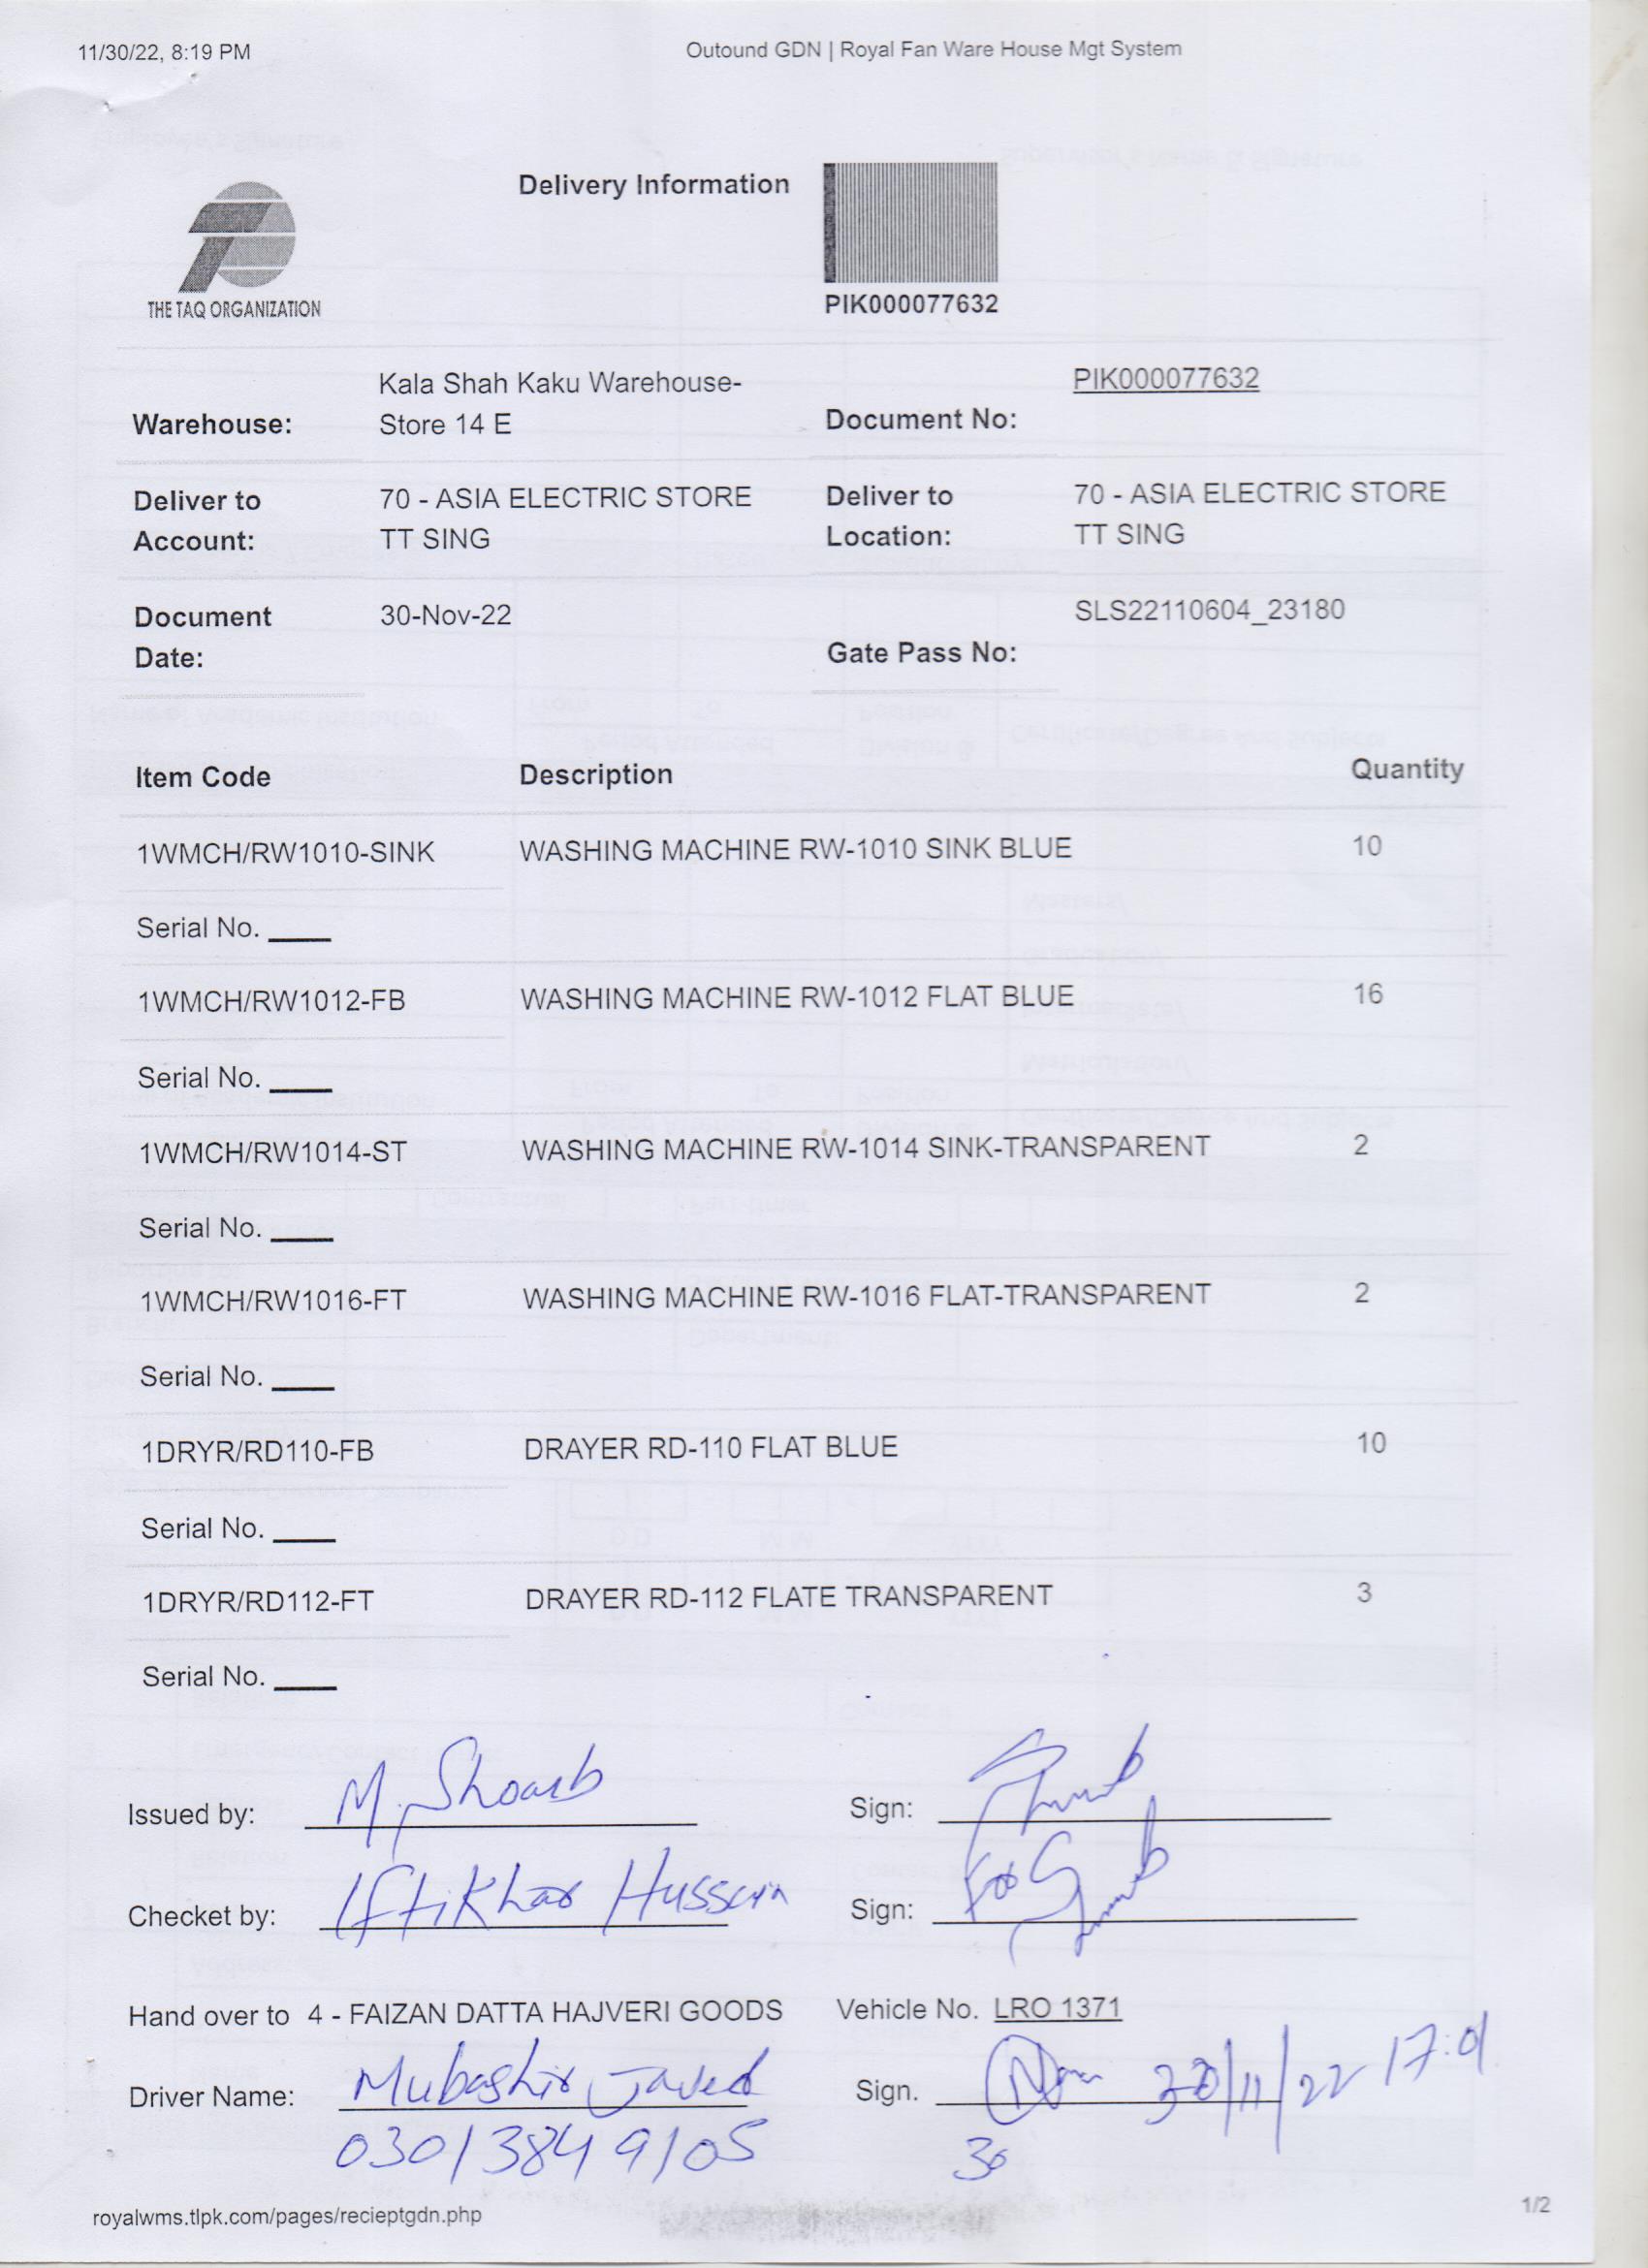 11/30/22, 8:19 PM Outound GDN | Royal Fan Ware House Mgt System
Delivery Information
THE TAQ ORGANIZATION
PIK000077632
Warehouse: Kala Shah Kaku Warehouse-
Store 14 E
Document No: PIK000077632
Deliver to
Account: 70 - ASIA ELECTRIC STORE
TT SING
Deliver to
Location: 70 - ASIA ELECTRIC STORE
TT SING
Document
Date: 30-Nov-22
Gate Pass No: SLS22110604_23180
Item Code Description Quantity
1WMCH/RW1010-SINK WASHING MACHINE RW-1010 SINK BLUE 10
Serial No. ____
1WMCH/RW1012-FB WASHING MACHINE RW-1012 FLAT BLUE 16
Serial No. ____
1WMCH/RW1014-ST WASHING MACHINE RW-1014 SINK-TRANSPARENT 2
Serial No. ____
1WMCH/RW1016-FT WASHING MACHINE RW-1016 FLAT-TRANSPARENT 2
Serial No. ____
1DRYR/RD110-FB DRAYER RD-110 FLAT BLUE 10
Serial No. ____
1DRYR/RD112-FT DRAYER RD-112 FLATE TRANSPARENT 3
Serial No. ____
Issued by: M. Shoaib Sign:
Checket by: Iftikhar Hussain Sign: For
Hand over to 4 - FAIZAN DATTA HAJVERI GOODS Vehicle No. LRO 1371
Driver Name: Mubashir Javed Sign. 30/11/22
03013849105 30
royalwms.tlpk.com/pages/recieptgdn.php 1/2